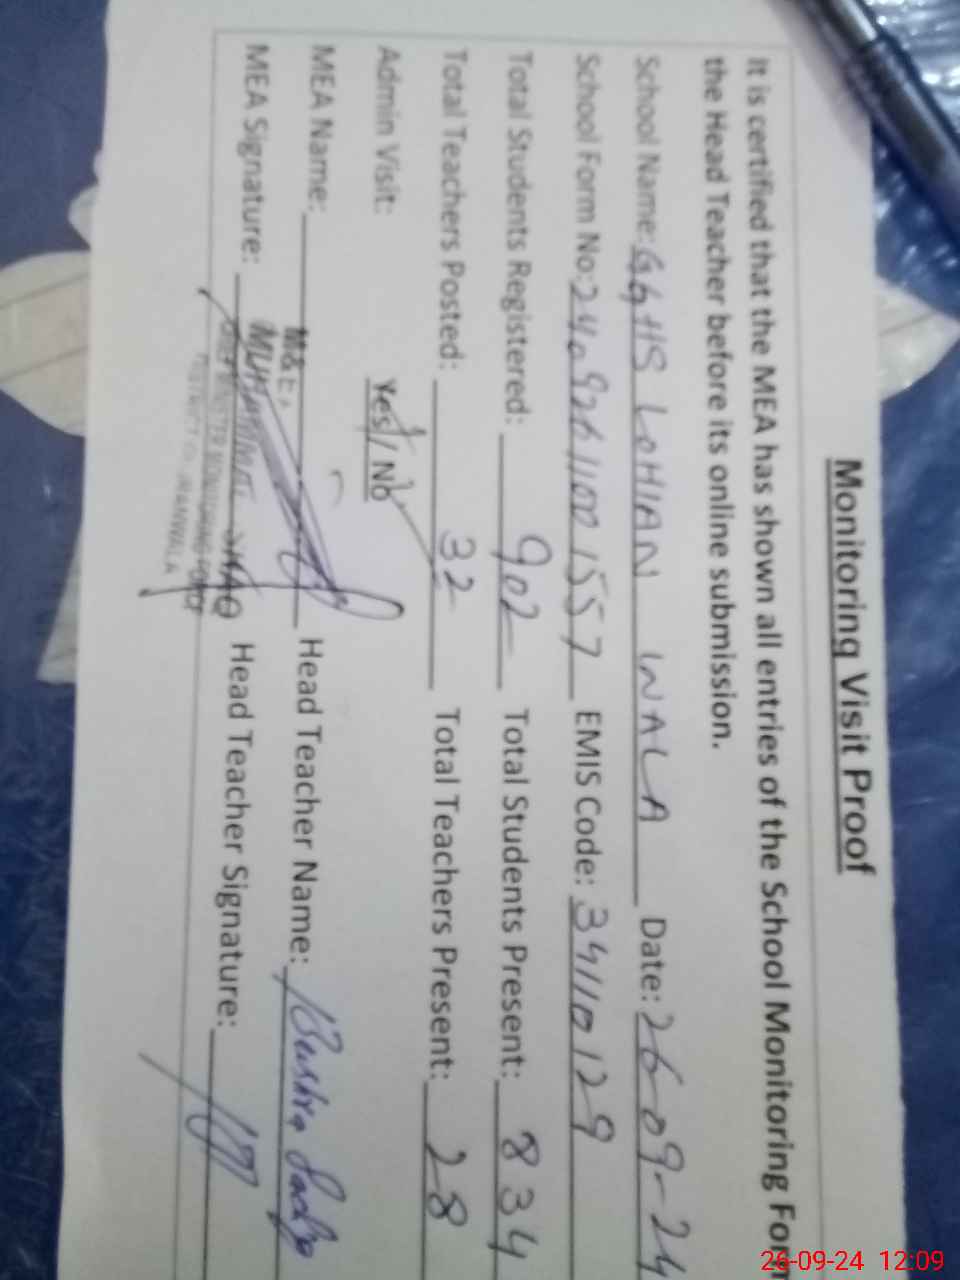 Monitoring Visit Proof
It is certified that the MEA has shown all entries of the School Monitoring Form
the Head Teacher before its online submission.
School Name: GGHS LOHIAN WALA Date: 26-09-24
School Form No: 240926110015 57 EMIS Code: 34110129
Total Students Registered: 902 Total Students Present: 834
Total Teachers Posted: 32 Total Teachers Present: 28
Admin Visit: Yes / No
MEA Name: Head Teacher Name: Bushra
M&E
MEA Signature: Head Teacher Signature:
26-09-24 12:09